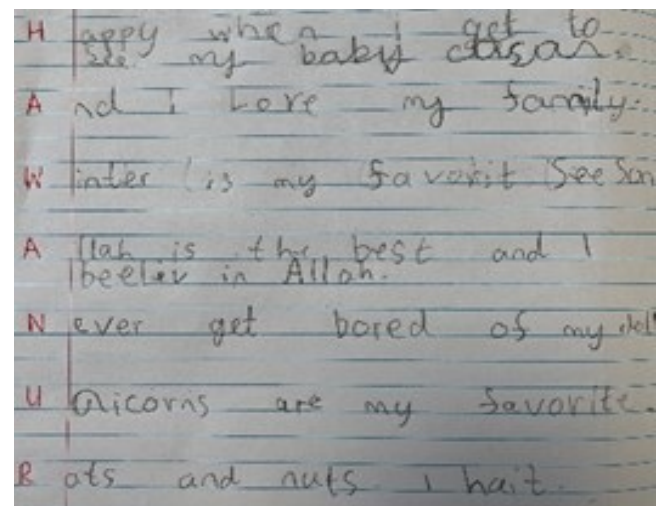 Happy when i get to
see my baby cusan.
And I Love my family.
Winter is my favorit SeeSon
Allah is the best and I
beeleiv in Allah.
Never get bored of my
Unicorns are my favorite.
Rats and nuts I hait.